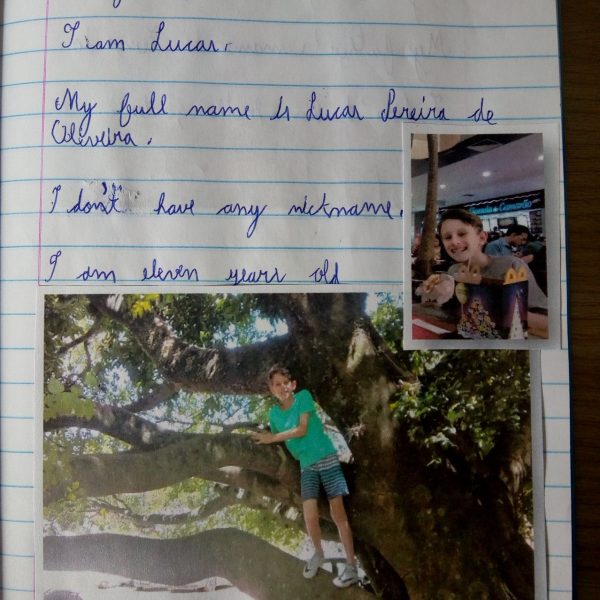 I am Lucas.
My full name is Lucas Pereira de
Oliveira.
I don't have any nickname.
I am eleven years old